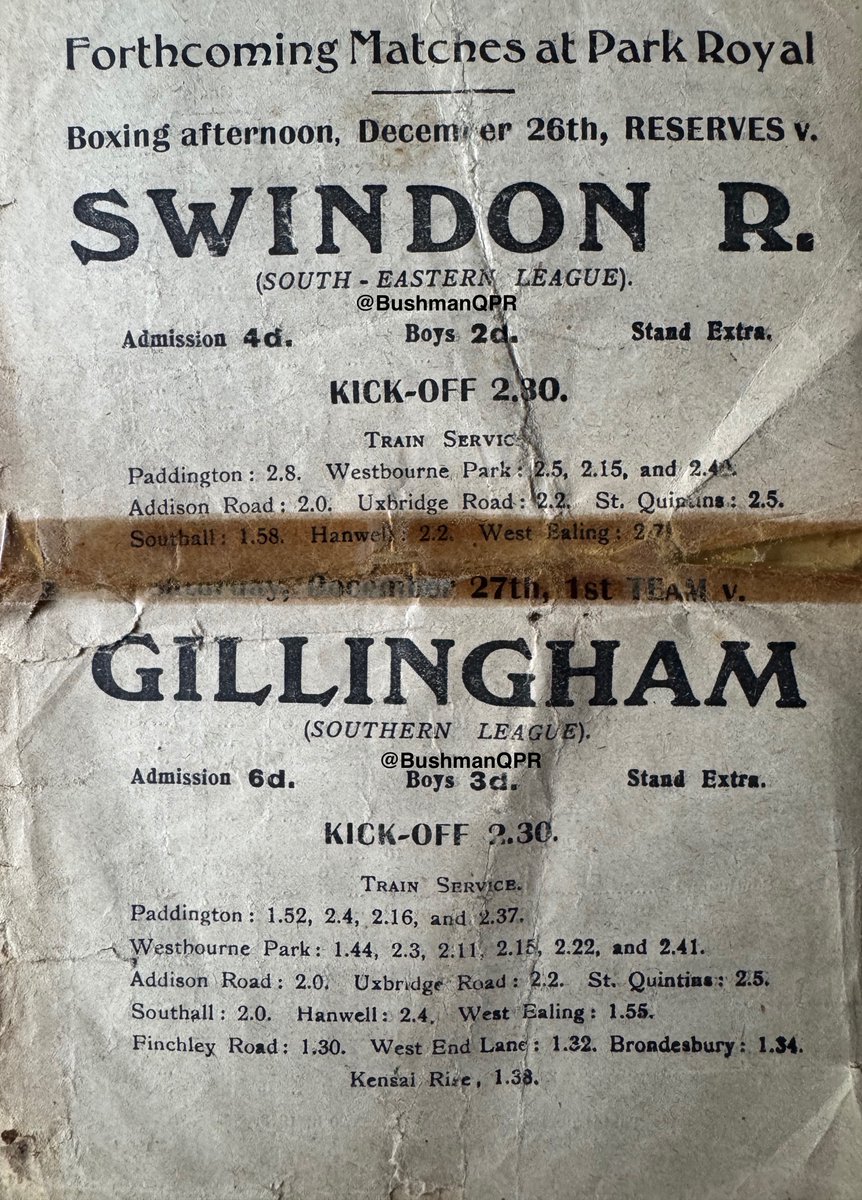 Forthcoming Matches at Park Royal
Boxing afternoon, December 26th, RESERVES v.
SWINDON R.
(SOUTH-EASTERN LEAGUE).
@BushmanQPR
Admission 4d. Boys 2d. Stand Extra.
KICK-OFF 2.30.
TRAIN SERVICE
Paddington: 2.8. Westbourne Park: 2.5, 2.15, and
Addison Road: 2.0. Uxbridge Road: 2.2. St. Quintins: 2.5.
Southall: 1.58. Hanwell: 2.2. West Ealing:
Saturday, December 27th, 1st TEAM v.
GILLINGHAM
(SOUTHERN LEAGUE).
@BushmanQPR
Admission 6d. Boys 3d. Stand Extra.
KICK-OFF 2.30.
TRAIN SERVICE.
Paddington: 1.52, 2.4, 2.16, and 2.37.
Westbourne Park: 1.44, 2.3, 2.11, 2.15, 2.22, and 2.41.
Addison Road: 2.0. Uxbridge Road: 2.2. St. Quintins: 2.5.
Southall: 2.0. Hanwell: 2.4. West Ealing: 1.55.
Finchley Road: 1.30. West End Lane: 1.32. Brondesbury: 1.34.
Kensal Rise, 1.38.